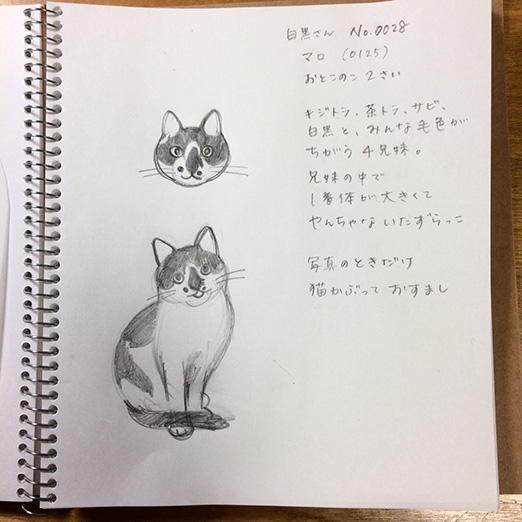 白黒さん No.0028
マロ (0125)
おとこのこ 2さい
キジトラ、茶トラ、サビ、
白黒と、みんな毛色が
ちがう 4兄妹。
兄妹の中で
1番体が大きくて
やんちゃないたずらっこ
写真のときだけ
猫かぶって おすまし